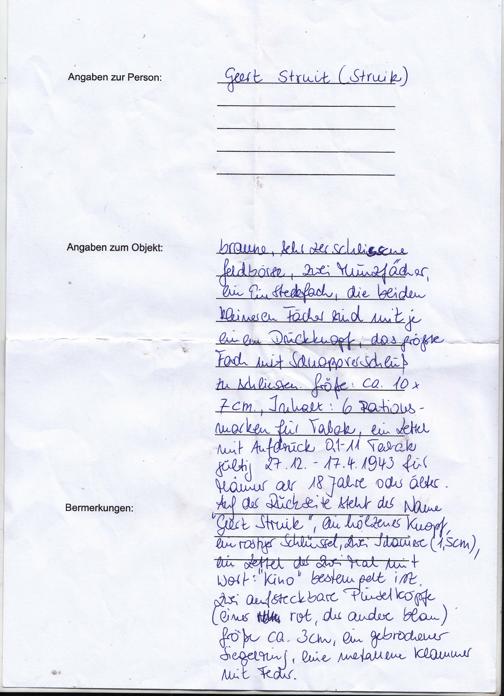 Angaben zur Person: Geert Struit (Struik)
Angaben zum Objekt: braune, sehr zerschlissene
Geldbörse, zwei Münzfächer,
ein Einsteckfach, die beiden
kleineren Fächer sind mit je
einem Druckknopf, das größte
Fach mit Schnappverschluß
zu schliessen. Größe: ca. 10 x
7 cm, Inhalt: 6 Rations-
marken für Tabak, ein Zettel
mit Aufdruck 01-11 Tabak
gültig 27.12. - 17.4 1943 für
Männer ab 18 Jahre oder älter.
Bermerkungen: Auf der Rückseite steht der Name
"Geert Struik", ein hölzener Knopf,
ein rostiger Schlüssel, zwei (1,5cm),
ein Zettel der zwei Mal mit
Wort: "Kino" bestempelt ist.
Zwei aufsteckbare Pinselköpfe
(einer rot, der andere blau)
Größe ca. 3cm, ein gebrochener
Siegelring, eine metallene Klammer
mit Feder.